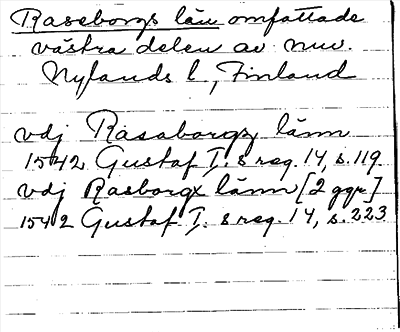 Raseborgs län omfattade
västra delen av nuv.
Nylands l, Finland
vdj Rasaborgx länn
1542 Gustaf I:s reg. 14, s. 119
vdj Rasborgx länn [2 ggr]
1542 Gustaf I:s reg. 14, s. 223